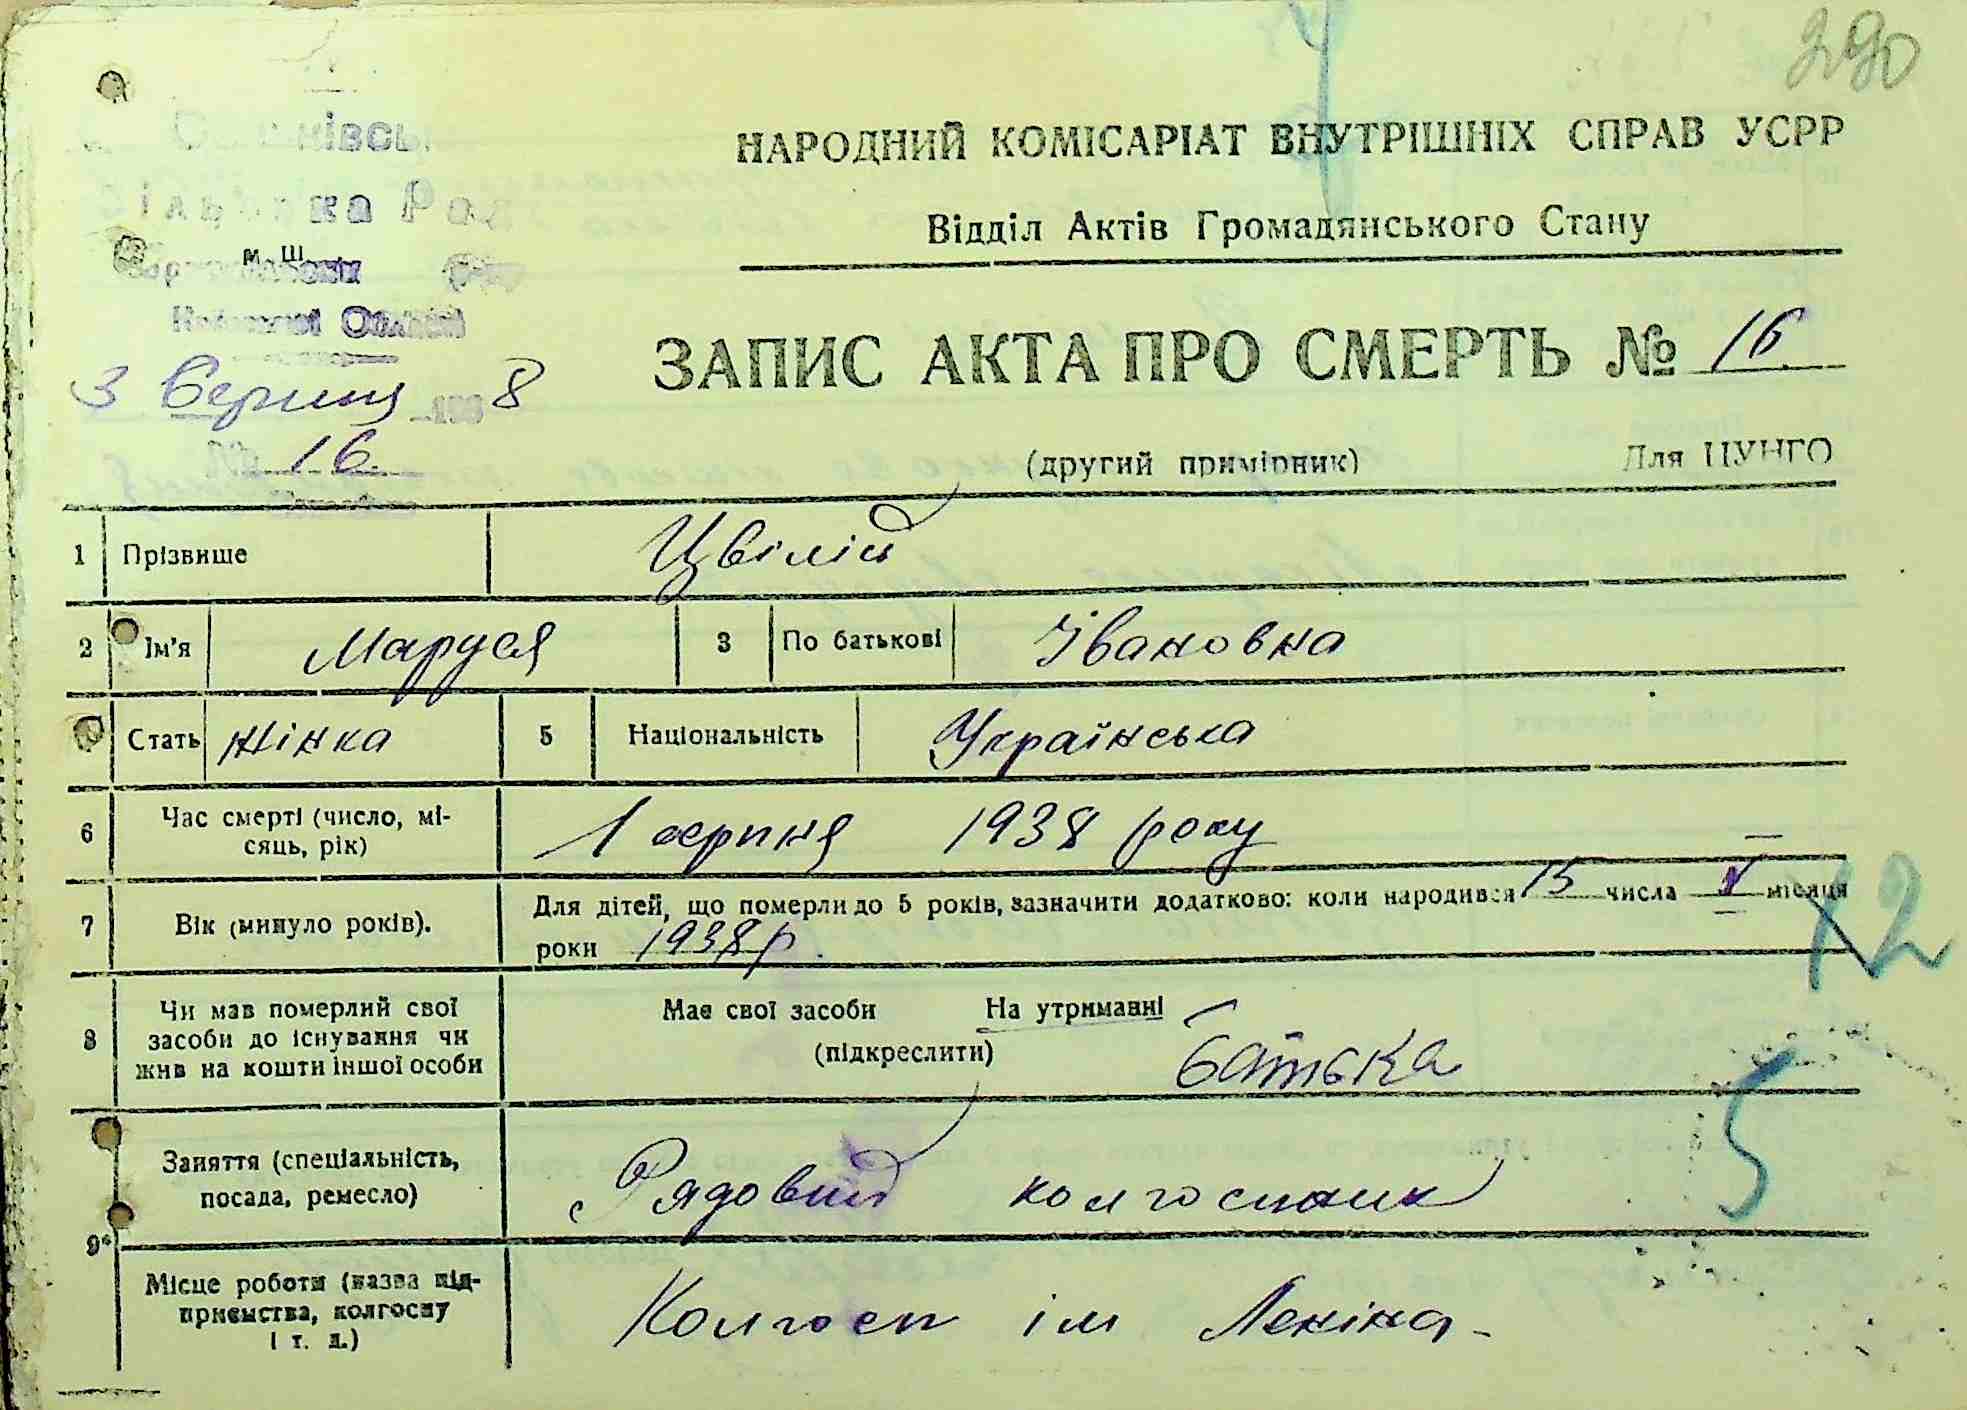 290
НАРОДНИЙ КОМІСАРІАТ ВНУТРІШНІХ СПРАВ УСРР
Відділ Актів Громадянського Стану
м ш
Області
3 Серпня 193 8
№ 16.
ЗАПИС АКТА ПРО СМЕРТЬ № 16.
(другий примірник) Для ЦУНГО
1 Прізвище Цвілій
2 Ім'я Маруся 3 По батькові Івановна
Стать жінка 5 Національність Українська
6 Час смерті (число, мі-
сяць, рік) 1 серпня 1938 року
7 Вік (минуло років). Для дітей, що померли до 5 років, зазначити додатково: коли народився 15 числа V місяця
роки 1938 р.
12
8 Чи мав померлий свої
засоби до існування чи
жив на кошти іншої особи
Має свої засоби На утриманні
(підкреслити) батька
5
9 Заняття (спеціальність,
посада, ремесло) Рядовий колгоспник
Місце роботи (назва під-
приємства, колгоспу
і т. д.) Колгосп ім Леніна-